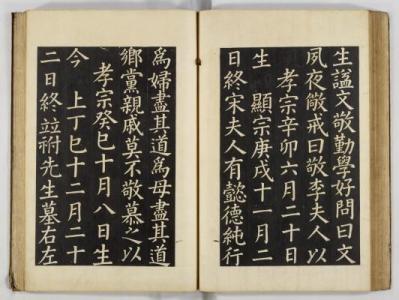 生謚文敬勤學好問曰文
夙夜儆戒曰敬李夫人以
孝宗辛卯六月二十日
生　顯宗庚戌十一月二
日終宋夫人有懿德純行
爲婦盡其道爲母盡其道
鄉黨親戚莫不敬慕之以
孝宗癸巳十月八日生
今　上丁巳十二月二十
二日終竝祔先生墓右左